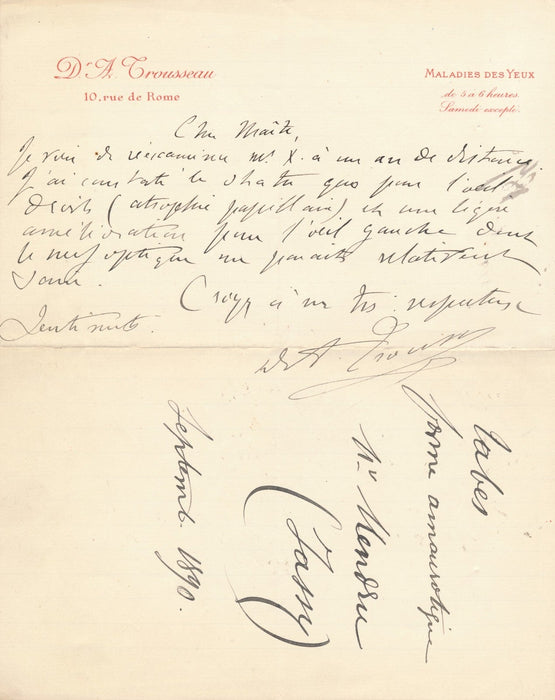 Dr A. Trousseau
10, rue de Rome
MALADIES DES YEUX
de 5 à 6 heures.
Samedi excepté.
Cher Maître,
Je viens de réexaminer Mr. X. à un an de distance
J'ai constaté le statu quo pour l'œil
droit (atrophie papillaire) et une légère
amélioration pour l'œil gauche dont
le nerf optique me paraît relativement
sain.
Croyez à mes très respectueux
sentiments.
Dr A Trousseau
Tabes
forme amaurotique
Mr Mendru
(Jassy)
Septemb. 1890.